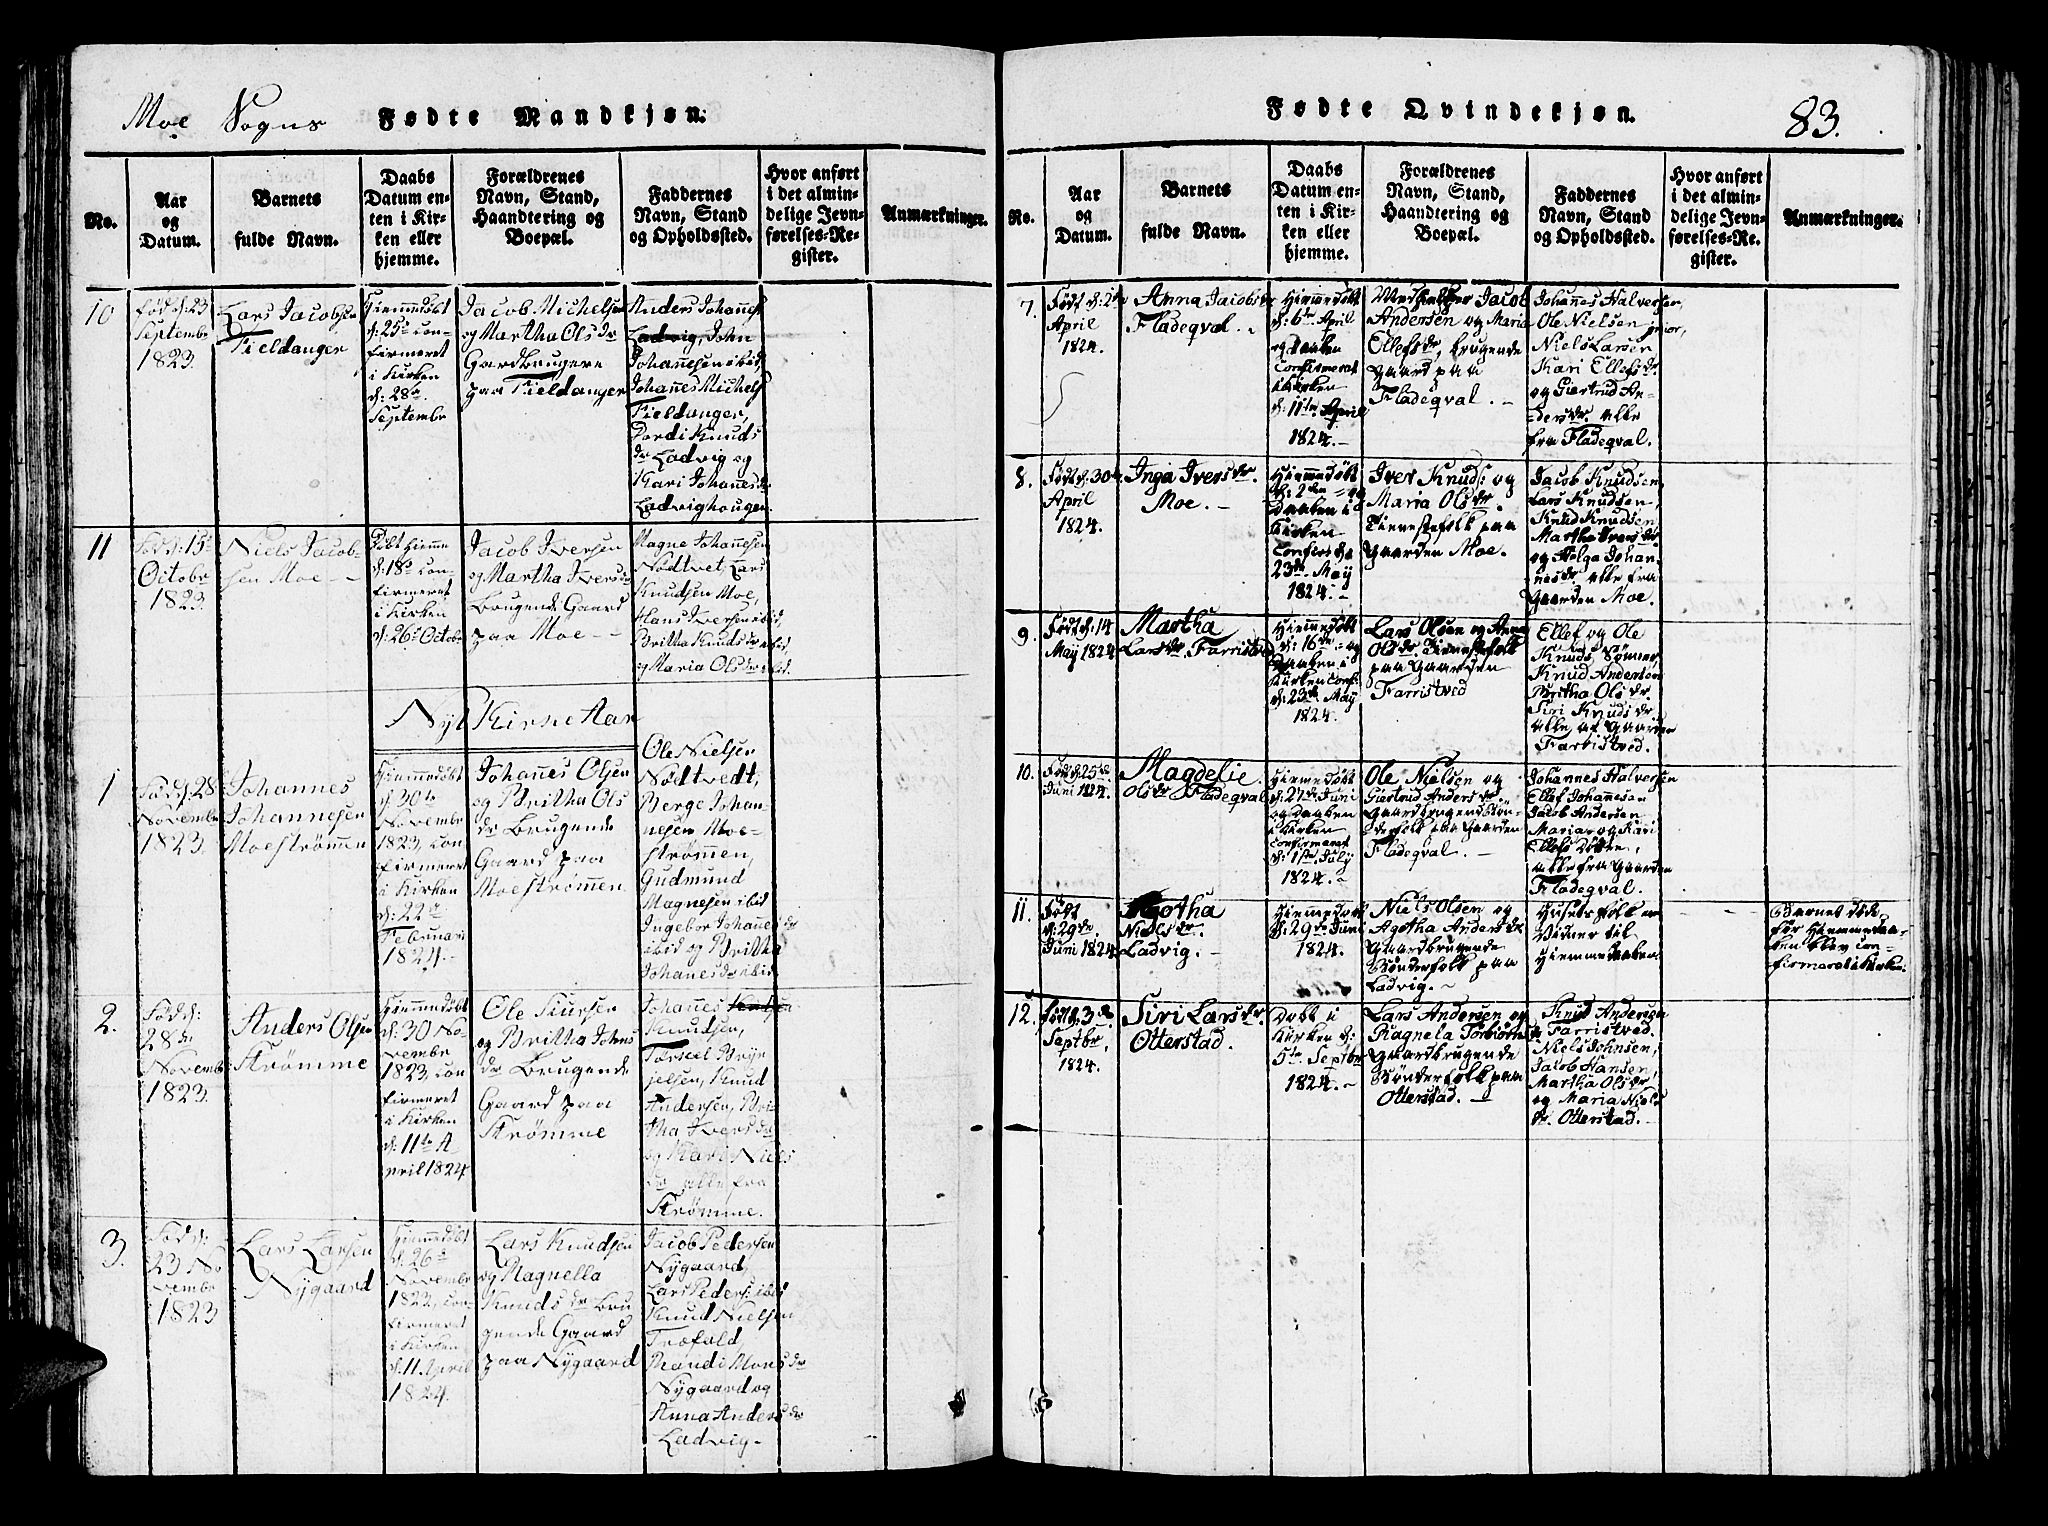 Moe Sogns Fødte Mandkjøn.
No.
Aar
og
Datum.
Barnets
fulde Navn.
Daabs
Datum en-
ten i Kir-
ken eller
hjemme.
Forældrenes
Navn, Stand,
Haandtering og
Boepæl.
Faddernes
Navn, Stand
og Opholdssted.
Hvor anført
i det almin-
delige Jevn-
førelses-Re-
gister.
Anmærkninger.
10
Fød d: 23
Septembr
1823.
Lars Jacobsen
Fieldanger
Hiemmedøbt
d: 25de con-
firmeret
i Kirken
d: 28de
Septembr
Jacob Michelsen
og Martha Ols dr
Gardbrugere
paa Fieldanger
Anders Johannes
Ladvig, John
Johannesen ibid,
Johannes Michels
Fieldanger,
Dordi Knuds
dr Ladvig og
Kari Johanes dr
Ladvighougen.
11
Fød d: 15de
Octobr
1823.
Niels Jacob-
sen Moe - -
Døbt hiemme
d: 18de con-
firmeret
i Kirken
d: 26de Octobr
Jacob Iversen
og Martha Ivers dr
Brugende Gaard
paa Moe - -
Magne Johannesen
Nødtvet, Lars
Knudsen Moe,
Hans Iversen ibid,
Britha Knuds dr ibid,
og Maria Ols dr ibid.
Nyt Kirke Aar
1
Fød d: 28
Novembr
1823.
Johannes
Johannesen
Moestrømmen
Hiemmedøbt
d: 30te
Novembr
1823, con
firmeret
i Kirken
d: 22de
Februari
1824. -
Johanes Olsen
og Britha Ols
dr Brugende
Gaard paa
Moestrømmen
Ole Nielsen
Nødtvedt,
Berge Johan-
nesen Moe-
strømmen,
Gudmund
Magnesen ibid
Ingebor Johanes dr
ibid og Britha
Johanes dr ibid
2.
Fød d:
28de
Novembr
1823.
Anders Olsen
Strømme
Hiemmedøbt
d: 30 No-
vembr
1823, con
firmeret
i Kirken
d: 11te A
pril 1824
Ole Siursen
og Britha Johns
dr Brugende
Gaard paa
Strømme
Johanes
Knudsen,
Torkiel Bryn
jelsen, Knud
Andersen, Bri-
tha Ivers dr
og Kari Niels
dr alle fra
Strømme.
3.
Fød d:
23 No
vembr
1823
Lars Larsen
Nygaard
Hiemmedøbt
d: 26de
Novembr
1823, con-
firmeret
i Kirken
d: 11. April
1824.
Lars Knudsen
og Ragnella
Knuds dr Bru
gende Gaard
paa Nygaard
Jacob Pedersen
Nygaard,
Lars Peders: ibid
Knud Nielsen
Træfald,
Brandi Mons dr
Nygaard og
Anna Anders dr
Ladvig -
Fødte Qvindekjøn. 83.
No.
Aar
og
Datum.
Barnets
fulde Navn.
Daabs
Datum en-
ten i Kir-
ken eller
hjemme.
Forældrenes
Navn, Stand,
Haandtering og
Boepæl.
Faddernes
Navn, Stand
og Opholdssted.
Hvor anført
i det almin-
delige Jevn-
førelses-Re-
gister.
Anmærkninger.
7.
Født d: 2de
April
1824.
Anna Jacobs dr
Fladeqval. -
Hiemmedøbt
d: 6te April
og Daaben
Confirmeret
i Kirken
d: 11te April
1824. -
Medhielper Jacob
Andersen og Maria
Ellefs dr, brugende
Gaard paa
Fladeqval. -
Johanes Halversen,
Ole Nielsen junior,
Niels Larsen
Kari Ellefs dr
og Giertrud An-
ders dr alle
fra Fladeqval.
8.
Født d: 30te
April
1824.
Inga Ivers dr
Moe. -
Hiemmedøbt
d: 2den - og
Daaben i
Kirken
Confirs d:
23de May
1824. -
Iver Knuds: og
Maria Ols dr
Tienestefolk paa
Gaarden Moe.
Jacob Knudsen,
Lars Knudsen,
Knud Knudsen,
Martha Ivers dr
og Helga Johan-
nes dr alle fra
Gaarden Moe.
9.
Født d: 14
May 1824
Martha
Lars dr Farristved
Hiemmedøbt
d: 16de - og
Daaben i
Kirken Conf:
d: 23de May
1824.
Lars Olsen og Anna
Ols dr Tienestefolk
paa Gaarden
Farristved
Ellef og Ole
Knuds Sønner,
Knud Andersen
Britha Ols dr
Siri Knuds dr
alle af Gaarden
Farristved.
10.
Født d: 25de
Juni 1824.
Magdelie
Ols dr Fladeqval
Hiemmedøbt
d: 27de Juni
og Daaben
i Kirken
Confirmeret
d: 1ste July
1824. -
Ole Nielsen og
Giertrud Anders dr
Gaardbrugende Bøn-
derfolk paa Gaarden
Fladeqval. -
Johannes Halversen
Ellef Johannesen
Jacob Andersen
Maria og Kari
Ellefs Døttre,
alle fra Gaarden
Fladeqval.
11.
Født
d: 29de
Juni 1824
Agotha
Niels dr
Ladvig. -
Hiemmedøbt
d: 29de Juni
1824.
Niels Olsen og
Agotha Anders dr
Gaardbrugende
Bønderfolk paa
Ladvig. -
Husets folk er
Vidner til
Hiemmedaaben
Barnet døde
før Hiemmedaa-
ben blev con-
firmeret i Kirken.
12.
Født d: 3de
Septbr.
1824.
Siri Lars dr
Otterstad.
Døbt i
Kirken d:
5te Septbr
1824. -
Lars Andersen og
Ragnela Torbiørns dr
Gaardbrugende
Bønderfolk paa
Otterstad. -
Knud Andersen
Farristved.
Niels Johnsen,
Jacob Hansen,
Martha Ols dr
og Maria Niels
dr. Otterstad. -